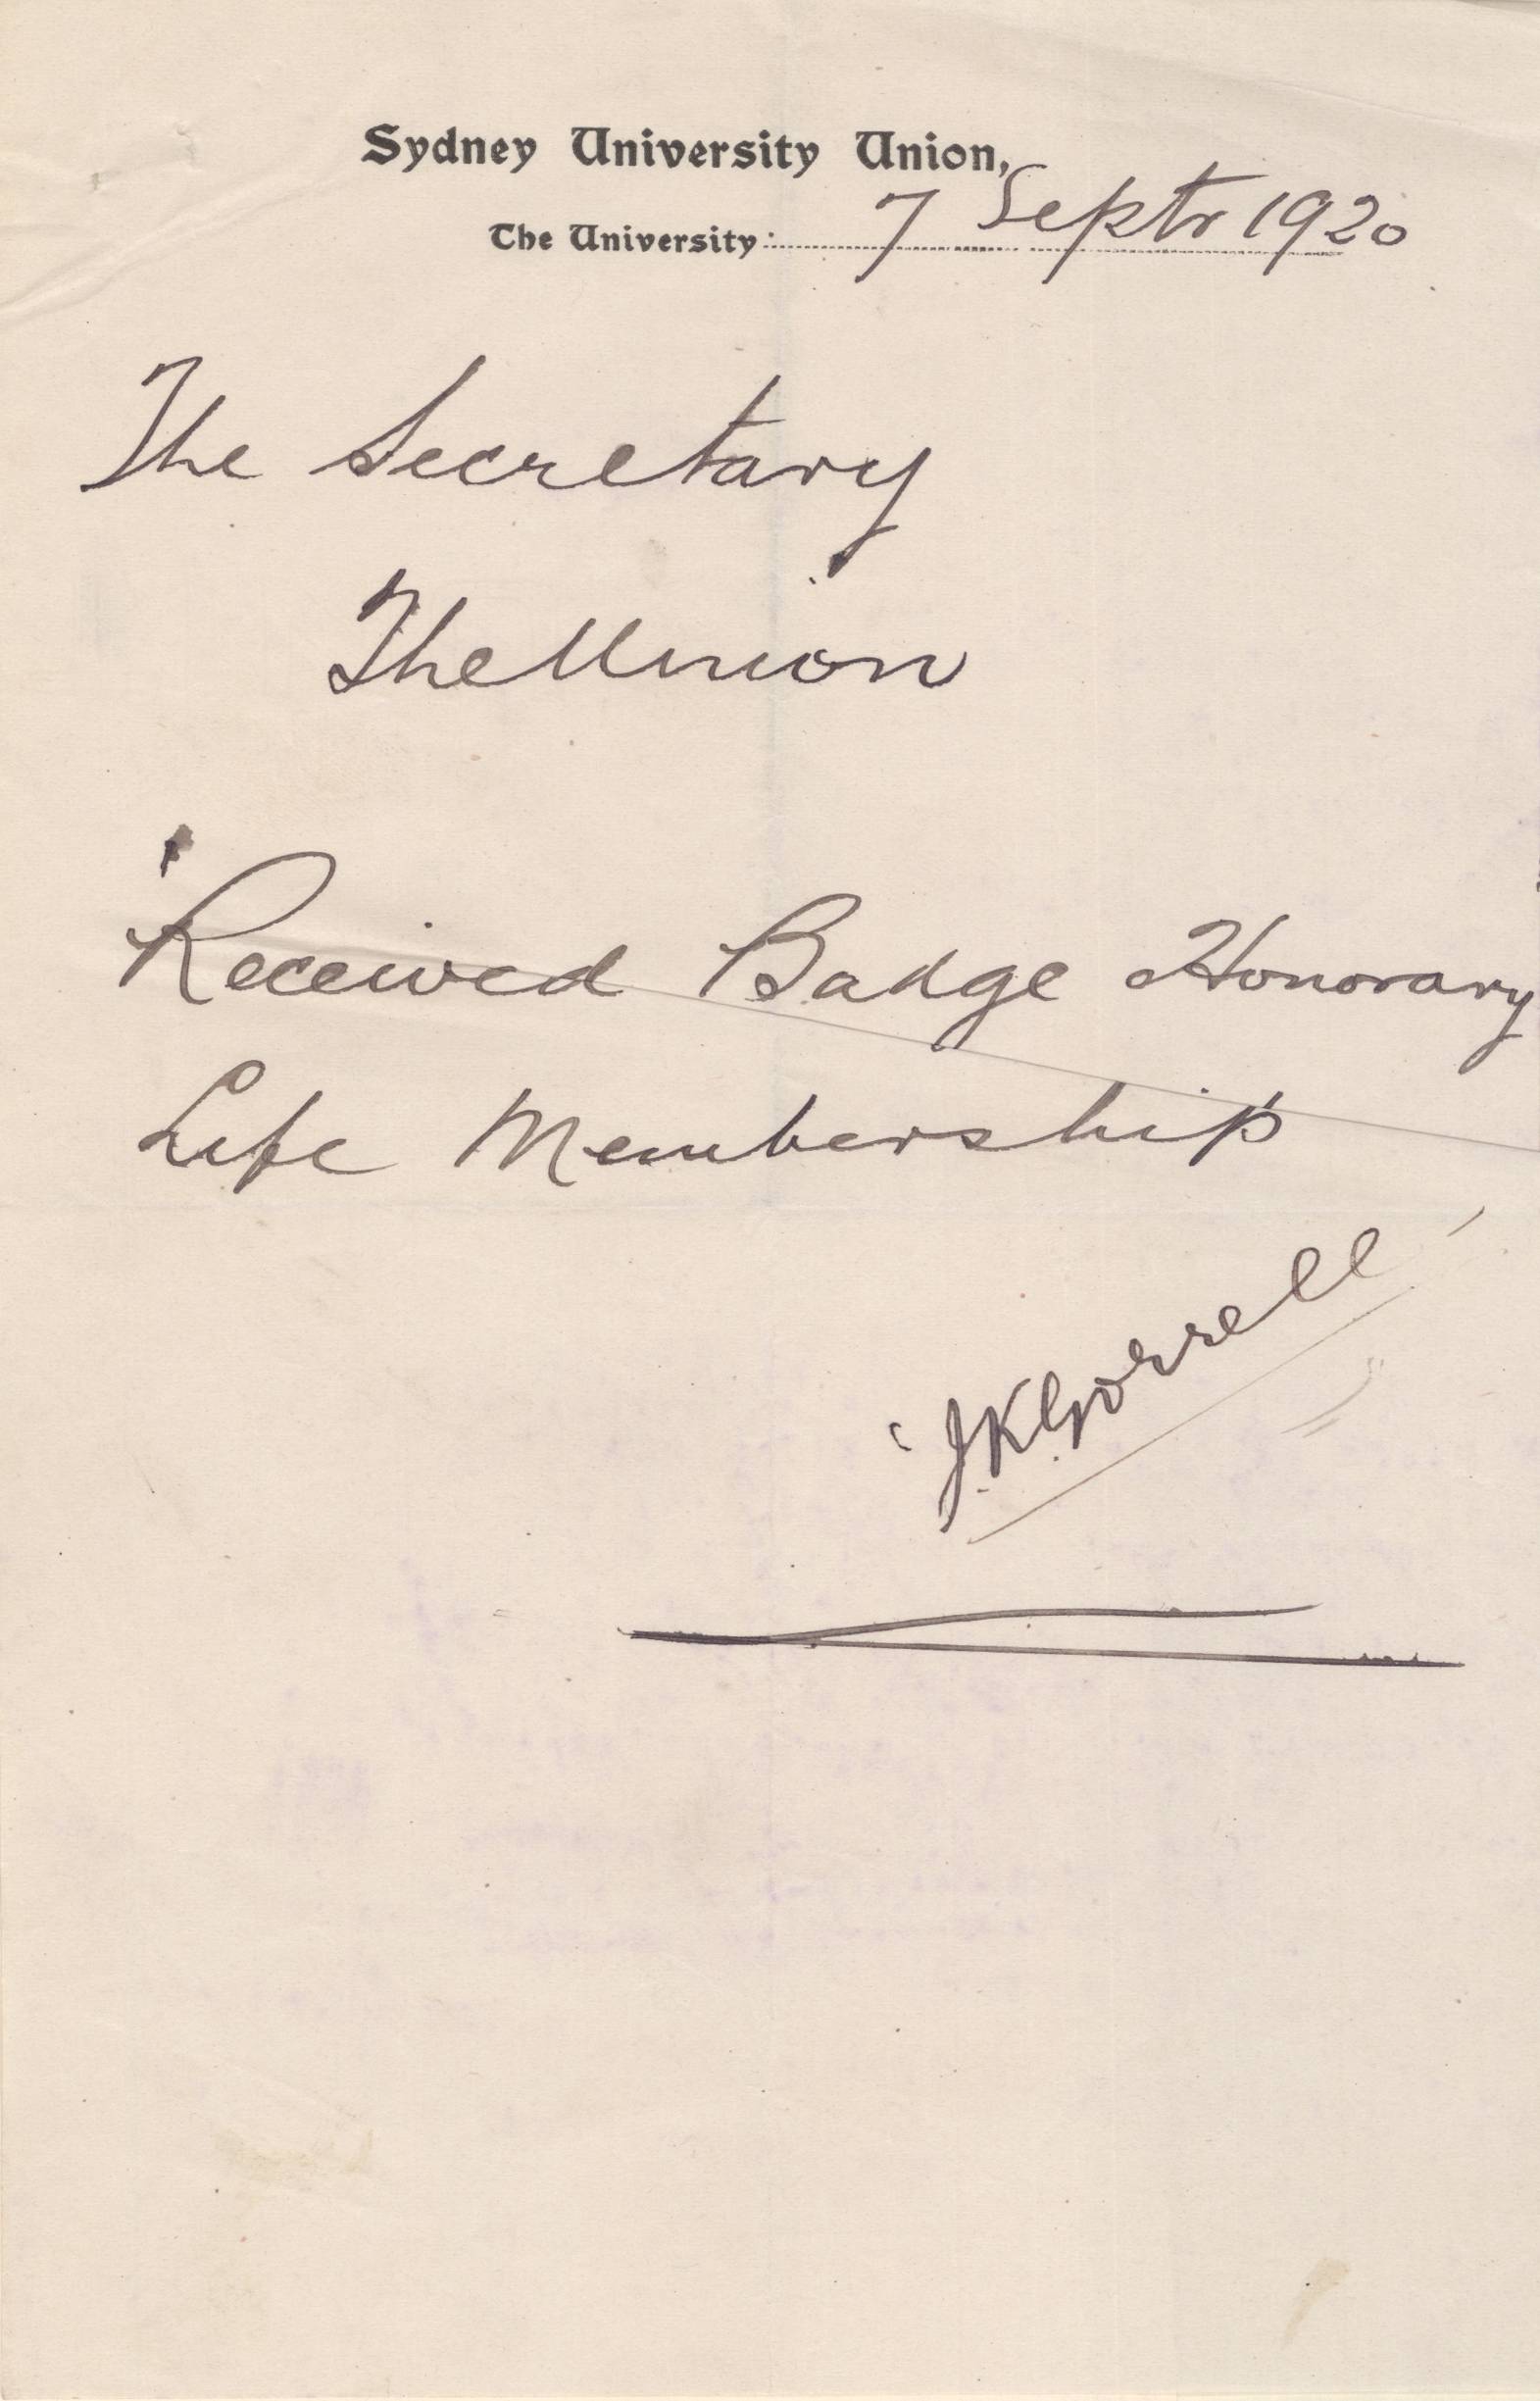 Sydney University Union,
The University: 7 Septr 1920
The Secretary
The Union
Received Badge Honorary
Life Membership
J.K.Gorrell